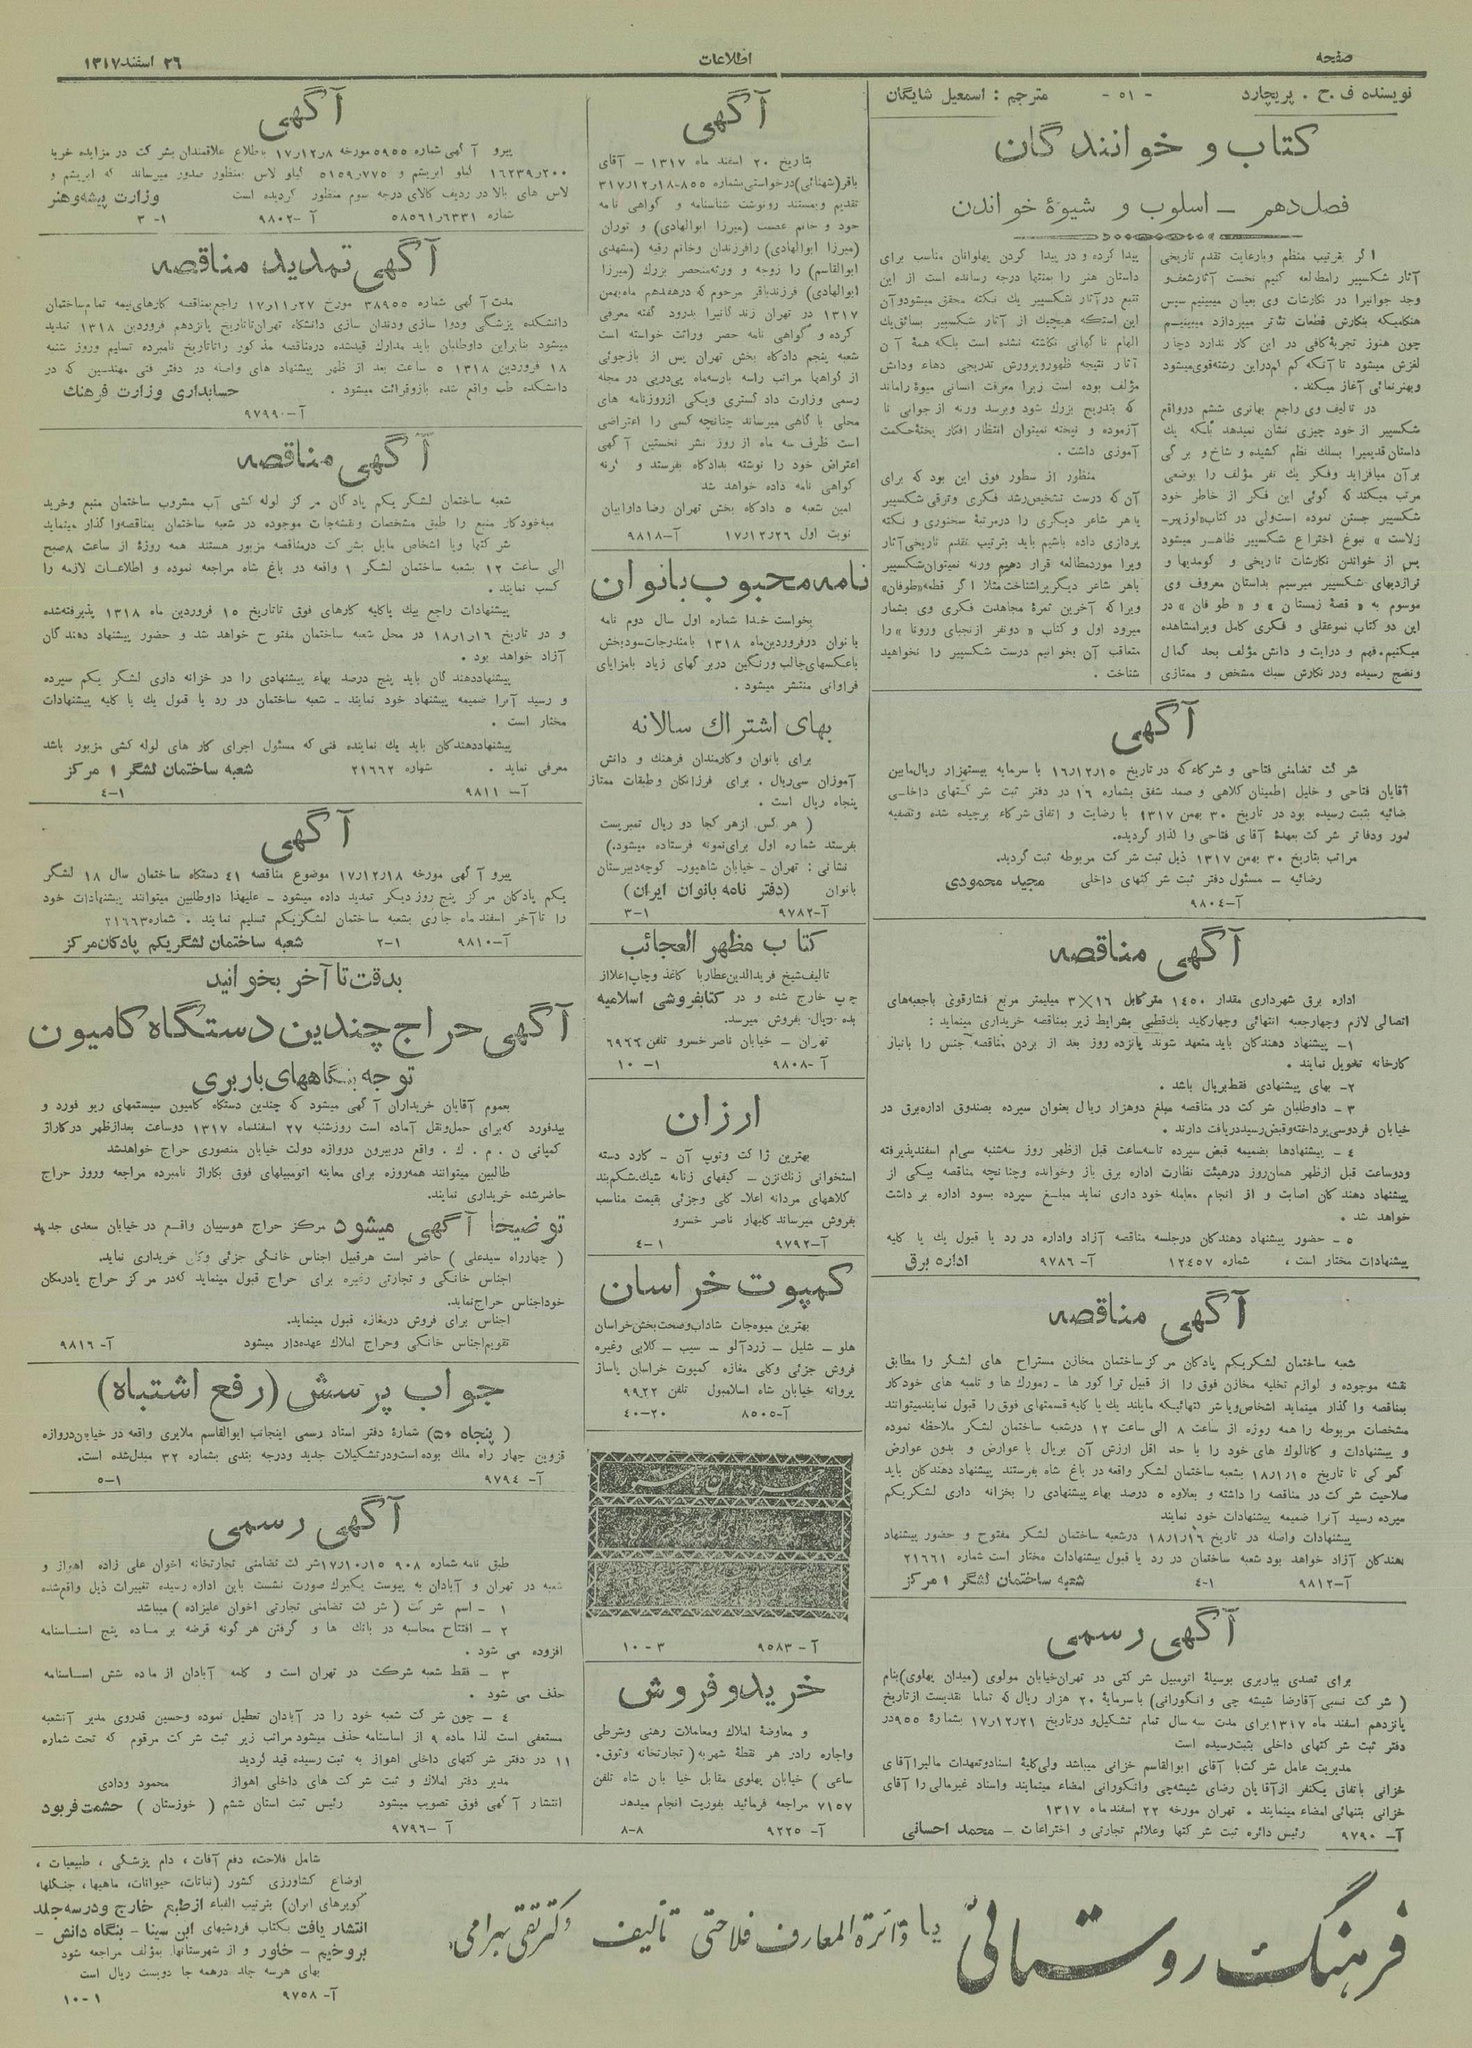 صفحه
اطلاعات
۲۶ اسفند ۱۳۱۷
نویسنده ف . ح . پریچارد
- ۵۱ -
مترجم : اسمعیل شایگان
کتاب و خوانندگان
فصل دهم – اسلوب و شیوهٔ خواندن
اگر بترتیب منظم وبارعایت تقدم تاریخی
آثار شکسپیر رامطالعه کنیم نخست آثارشعف‌و
وجد جوانیرا در نگارشات وی بعیان میبینیم سپس
هنگامیکه بنگارش قطعات تئاتر میپردازد میبینیم
چون هنوز تجربهٔ‌کافی در این کار ندارد دچار
لغزش میشود تاآنکه کم کم‌دراین رشته‌قوی‌میشود
وبهنرنمائی آغاز میکند .
در تالیف وی راجع بهانری ششم درواقع
شکسپیر از خود چیزی نشان نمیدهد بلکه یك
داستان قدیمیرا بسلك نظم کشیده و شاخ و برگی
برآن میافزاید وفکر یك نفر مؤلف را بوضعی
مرتب میکندکه گوئی این فکر از خاطر خود
شکسپیر جستن نموده است‌ولی در کتاب«اوزپیر-
زلاست » نبوغ اختراع شکسپیر ظاهر میشود
پس از خواندن نگارشات تاریخی و کومدیها و
تراژدیهای شکسپیر میرسیم بداستان معروف وی
موسوم به « قصهٔ زمستان » و « طوفان » در
این دو کتاب نموعقلی و فکری کامل ویرامشاهده
میکنیم.فهم و درایت و دانش مؤلف بحد کمال
ونضج رسیده ودر نگارش سبك مشخص و ممتازی
پیدا کرده و در پیدا کردن پهلوانان مناسب برای
داستان هنر را بمنتها درجه رسانده است از این
تتبع درآثار شکسپیر یك نکته محقق میشودوآن
این استکه هیچیك از آثار شکسپیر بسائق‌یك
الهام ناگهانی نگاشته نشده است بلکه همهٔ آن
آثار نتیجه ظهوروپرورش تدریجی دهاء ودانش
مؤلف بوده است زیرا معرفت انسانی میوهٔ راماند
که بتدریج بزرك شود وبرسد ورنه از جوانی نا
آزموده و نپخته نمیتوان انتظار افکار پختهٔ‌حکمت
آموزی داشت .
منظور از سطور فوق این بود که برای
آن که درست تشخیص‌رشد فکری وترقی شکسپیر
یاهر شاعر دیگری را درمرتبهٔ سخنوری و نکته
پردازی داده باشیم باید بترتیب تقدم تاریخی‌آثار
ویرا موردمطالعه قرار دهیم ورنه نمیتوان‌شکسپیر
یاهر شاعر دیگریراشناخت مثلا اگر قطعه«طوفان»
ویراکه آخرین ثمرهٔ مجاهدت فکری وی بشمار
میرود اول و کتاب « دونفر ازنجبای ورونا » را
متعاقب آن بخوانیم درست شکسپیر را نخواهید
شناخت .
آگهی
شرکت تضامنی فتاحی و شرکاءکه در تاریخ ۱۶/۱۲/۱۵ با سرمایه بیستهزار ریال‌مابین
آقایان فتاحی و خلیل اطمینان کلاهی و صمد شفق بشماره ۱۶ در دفتر ثبت شرکتهای داخلی
ضائیه بثبت رسیده بود در تاریخ ۳۰ بهمن ۱۳۱۷ با رضایت و اتفاق شرکاء برچیده شده وتصفیه
امور ودفاتر شرکت بعهدهٔ آقای فتاحی واگذار گردیده.
مراتب بتاریخ ۳۰ بهمن ۱۳۱۷ ذیل ثبت شرکت مربوطه ثبت گردید.
رضائیه – مسئول دفتر ثبت شرکتهای داخلی مجید محمودی
آ-۹۸۰۴
آگهی مناقصه
اداره برق شهرداری مقدار ۱۴۵۰ مترکابل ۱۶×۳ میلیمتر مربع فشارقوی باجعبه‌های
اتصالی لازم وچهارجعبه انتهائی وچهارکلید یك‌قطبی بشرایط زیر بمناقصه خریداری مینماید :
۱– پیشنهاد دهندکان باید متعهد شوند پانزده روز بعد از بردن مناقصه جنس را بانبار
کارخانه تحویل نمایند .
۲– بهای پیشنهادی فقط بریال باشد .
۳ – داوطلبان شرکت در مناقصه مبلغ دوهزار ریال بعنوان سپرده بصندوق اداره‌برق در
خیابان فردوسی‌پرداخته‌وقبض‌رسیددریافت دارند .
۴ – پیشنهادها بضمیمه قبض سپرده تاسه‌ساعت قبل ازظهر روز سه‌شنبه سی‌ام اسفندپذیرفته
ودوساعت قبل ازظهر همان‌روز درهیئت نظارت اداره برق باز وخوانده وچنانچه مناقصه بیکی از
پیشنهاد دهندکان اصابت و از انجام معامله خود داری نماید مبلغ سپرده بسود اداره برداشت
خواهد شد .
۵ – حضور پیشنهاد دهندکان درجلسه مناقصه آزاد واداره در رد یا قبول یك یا کلیه
پیشنهادات مختار است ، شماره ۱۲۴۵۷ آ- ۹۷۸۶ اداره برق
آگهی مناقصه
شعبه ساختمان لشکریکم پادکان مرکزساختمان مخازن مستراح های لشکر را مطابق
نقشه موجوده و لوازم تخلیه مخازن فوق را از قبیل تراکورها – رمورك ها و تلمبه های خودکار
بمناقصه واگذار مینماید اشخاص‌ویاشرکتهائیکه مایلند یك یا کلیه قسمتهای فوق را قبول نمایندمیتوانند
مشخصات مربوطه را همه روزه از ساعت ۸ الی ساعت ۱۲ درشعبه ساختمان لشکر ملاحظه نموده
و پیشنهادات و کاتالوك های خود را با حد اقل ارزش آن بریال با عوارض و بدون عوارض
گمرکی تا تاریخ ۱۸/۱/۱۵ بشعبه ساختمان لشکر واقعه در باغ شاه بفرستند پیشنهاد دهندکان باید
صلاحیت شرکت در مناقصه را داشته و بعلاوه ۵ درصد بهاء پیشنهادی را بخزانه داری لشکریکم
سپرده رسید آنرا ضمیمه پیشنهادات خود نمایند
پیشنهادات واصله در تاریخ ۱۸/۱/۱۶ درشعبه ساختمان لشکر مفتوح و حضور پیشنهاد
دهندکان آزاد خواهد بود شعبه ساختمان در رد یا قبول پیشنهادات مختار است شماره ۲۱۶۶۱
آ-۹۸۱۲ ۴-۱ شعبه ساختمان لشگر ۱ مرکز
آگهی رسمی
برای تصدی بباربری بوسیلهٔ اتومبیل شرکتی در تهران‌خیابان مولوی (میدان پهلوی)بنام
( شرکت نسبی آقارضا شیشه چی و انگورانی) باسرمایهٔ ۲۰ هزار ریال که تماما نقدیست ازتاریخ
پانزدهم اسفند ماه ۱۳۱۷برای مدت سه سال تمام تشکیل‌و درتاریخ ۱۷/۱۲/۲۱ بشمارهٔ ۹۵۵در
دفتر ثبت شرکتهای داخلی بثبت‌رسیده است
مدیریت عامل شرکت‌با آقای ابوالقاسم خزانی میباشد ولی‌کلیهٔ اسنادوتعهدات مالیراآقای
خزانی باتفاق یکنفر ازآقایان رضای شیشه‌چی وانگورانی امضاء مینمایند واسناد غیرمالی را آقای
خزانی بتنهائی امضاء مینمایند . تهران مورخه ۲۲ اسفندماه ۱۳۱۷
آ- ۹۷۹۰ رئیس دائره ثبت شرکتها وعلائم تجارتی و اختراعات – محمد احسانی
آگهی
بتاریخ ۲۰ اسفند ماه ۱۳۱۷ – آقای
باقر(شهنائی)درخواستی‌بشماره ۸۵۵-۳۱۷/۱۲/۱۸
تقدیم وبمستند رونوشت شناسنامه و گواهی نامه
خود و خانم عصمت (میرزا ابوالهادی) و توران
(میرزا ابوالهادی) رافرزندان وخانم رقیه (مشهدی
ابوالقاسم) را زوجه و ورثه‌منحصر بزرك (میرزا
ابوالهادی) فرزندباقر مرحوم که درهفدهم ماه‌بهمن
۱۳۱۷ در تهران زندگانیرا بدرود گفته معرفی
کرده و گواهی نامه حصر وراثت خواسته است
شعبه پنجم دادکاه بخش تهران پس از بازجوئی
از گواهها مراتب راسه بارسه‌ماه پی‌درپی در مجله
رسمی وزارت دادگستری ویکی ازروزنامه های
محلی باگاهی میرساند چنانچه کسی را اعتراضی
است ظرف سه ماه از روز نشر نخستین آگهی
اعتراض خود را نوشته بدادکاه بفرستد و ارنه
گواهی نامه داده خواهد شد
امین شعبه ۵ دادکاه بخش تهران رضا دارابیان
نوبت اول ۱۷/۱۲/۲۶ آ-۹۸۱۸
نامه محبوب بانوان
بخواست خدا شماره اول سال دوم نامه
بانوان درفروردین‌ماه ۱۳۱۸ بامندرجات سودبخش
باعکسهای‌جالب ورنگین دربرگهای زیاد بامزایای
فراوانی منتشر میشود .
بهای اشتراك سالانه
برای بانوان وکارمندان فرهنك و دانش
آموزان سی‌ریال . برای فرزانگان وطبقات ممتاز
پنجاه ریال است .
( هر کس ازهر کجا دو ریال تمبرپست
بفرستد شماره اول برای‌نمونه فرستاده میشود.)
نشانی : تهران – خیابان شاهپور– کوچه‌دبیرستان
بانوان (دفتر نامه بانوان ایران)
آ-۹۷۸۲ ۳-۱
کتاب مظهر العجائب
تالیف‌شیخ فریدالدین‌عطاربا کاغذ وچاپ اعلااز
چاپ خارج شده و در کتابفروشی اسلامیه
بده ریال بفروش میرسد.
تهران – خیابان ناصر خسرو تلفن ۶۹۶۶
آ-۹۸۰۸ ۱۰-۱
ارزان
بهترین ژاکت وتوپ آن – کارد دسته
استخوانی زنك‌نزن – کیفهای زنانه شیك–شکم‌بند
کلاههای مردانه اعلا– کلی وجزئی بقیمت مناسب
بفروش میرساند کابهار ناصر خسرو
آ-۹۷۹۲ ۴-۱
کمپوت خراسان
بهترین میوه‌جات شاداب‌وصحت‌بخش‌خراسان
هلو – شلیل – زردآلو – سیب – گلابی وغیره
فروش جزئی وکلی مغازه کمپوت خراسان پاساژ
پروانه خیابان شاه اسلامبول تلفن ۹۹۲۲
آ-۸۰۰۵ ۴۰-۲۰
آ- ۹۵۸۳ ۱۰-۳
خرید و فروش
و معاوضهٔ املاك ومعاملات رهنی وشرطی
واجاره رادر هر نقطهٔ شهر به ( تجارتخانه وثوق.
ساعی ) خیابان پهلوی مقابل خیابان شاه تلفن
۷۱۵۷ مراجعه فرمائید بفوریت انجام میدهد
آ- ۹۲۲۵ ۸-۸
آگهی
پیرو آگهی شماره ۵۹۵۵ مورخه ۱۷/۱۲/۸ باطلاع علاقمندان بشرکت در مزایده خرید
۱۶۲۳۹/۲۰۰ کیلو ابریشم و ۵۱۵۹/۷۷۵ کیلو لاس بمنظور صدور میرساند که ابریشم و
لاس های بالا در ردیف کالای درجه سوم منظور گردیده است وزارت پیشه‌وهنر
شماره ۵۸۵۶۱/۶۳۳۱ آ-۹۸۰۲ ۳-۱
آگهی تمدید مناقصه
مدت آگهی شماره ۳۸۹۵۵ مورخ ۱۷/۱۱/۲۷ راجع‌بمناقصه کارهای‌نیمه تمام‌ساختمان
دانشکده پزشگی ودوا سازی ودندان سازی دانشگاه تهران‌تاتاریخ پانزدهم فروردین ۱۳۱۸ تمدید
میشود بنابراین داوطلبان باید مدارك قیدشده درمناقصه مذکور راتاتاریخ نامبرده تسلیم وروز شنبه
۱۸ فروردین ۱۳۱۸ ۵ ساعت بعد از ظهر پیشنهاد های واصله در دفتر فنی مهندسین که در
دانشکده طب واقع شده بازوقرائت میشود . حسابداری وزارت فرهنك
آ-۹۷۹۹۰
آگهی مناقصه
شعبه ساختمان لشگر یکم پادگان مرکز لوله کشی آب مشروب ساختمان منبع وخرید
میه‌خودکار منبع را طبق مشخصات ونقشه‌جات موجوده در شعبه ساختمان بمناقصه‌واگذار مینماید
شرکتها ویا اشخاص مایل بشرکت درمناقصه مزبور هستند همه روزهٔ از ساعت ۸صبح
الی ساعت ۱۲ بشعبه ساختمان لشگر ۱ واقعه در باغ شاه مراجعه نموده و اطلاعات لازمه را
کسب نمایند .
پیشنهادات راجع بیك یاکلیه کارهای فوق تاتاریخ ۱۵ فروردین ماه ۱۳۱۸ پذیرفته‌شده
و در تاریخ ۱۸/۱/۱۶ در محل شعبه ساختمان مفتوح خواهد شد و حضور پیشنهاد دهندگان
آزاد خواهد بود .
پیشنهاددهندگان باید پنج درصد بهاء پیشنهادی را در خزانه داری لشگر یکم سپرده
و رسید آنرا ضمیمه پیشنهاد خود نمایند – شعبه ساختمان در رد یا قبول یك یا کلیه پیشنهادات
مختار است .
پیشنهاددهندکان باید یك نماینده فنی که مسئول اجرای کار های لوله کشی مزبور باشد
معرفی نماید . شماره ۲۱۶۶۲ شعبه ساختمان لشگر ۱ مرکز
آ- ۹۸۱۱ ۴-۱
آگهی
پیرو آگهی مورخه ۱۷/۱۲/۱۸ موضوع مناقصه ۴۱ دستگاه ساختمان سال ۱۸ لشگر
یکم پادکان مرکز پنج روز دیگر تمدید داده میشود – علیهذا داوطلبین میتوانند پیشنهادات خود
را تاآخر اسفند ماه جاری بشعبه ساختمان لشگریکم تسلیم نمایند . شماره ۲۱۶۶۳
آ-۹۸۱۰ ۲-۱ شعبه ساختمان لشگریکم پادکان مرکز
بدقت تا آخر بخوانید
آگهی حراج چندین دستگاه کامیون
توجه بنگاههای باربری
بعموم آقایان خریداران آگهی میشود که چندین دستگاه کامیون سیستمهای ریو فورد و
بیدفورد که‌برای حمل‌ونقل آماده است روزشنبه ۲۷ اسفندماه ۱۳۱۷ دوساعت بعدازظهر درکاراژ
کمپانی ن . م . ك . واقع دربیرون دروازه دولت خیابان منصوری حراج خواهدشد
طالبین میتوانند همه‌روزه برای معاینه اتومبیلهای فوق بکاراژ نامبرده مراجعه وروز حراج
حاضرشده خریداری نمایند.
توضیحا آگهی میشود مرکز حراج هوسپیان واقع در خیابان سعدی جدید
( چهارراه سیدعلی ) حاضر است هرقبیل اجناس خانگی جزئی وکلی خریداری نماید.
اجناس خانگی و تجارتی وغیره برای حراج قبول مینماید که‌در مرکز حراج یادرمکان
خوداجناس حراج‌نماید.
اجناس برای فروش درمغازه قبول مینماید.
تقویم‌اجناس خانگی وحراج املاك عهده‌دار میشود آ- ۹۸۱۶
جواب پرسش (رفع اشتباه)
( پنجاه ۵۰) شمارهٔ دفتر اسناد رسمی اینجانب ابوالقاسم ملایری واقعه در خیابان‌دروازه
قزوین چهار راه ملك بوده است‌ودرتشکیلات جدید ودرجه بندی بشماره ۳۲ مبدل‌شده است.
آ- ۹۷۹۴ ۵-۱
آگهی رسمی
طبق نامه شماره ۹۰۸ ۱۷/۱۰/۱۵شرکت تضامنی تجارتخانه اخوان علی زاده اهواز و
شعبه در تهران و آبادان به پیوست یکبرك صورت نشست باین اداره رسیده تغییرات ذیل واقع‌شده
۱ – اسم شرکت ( شرکت تضامنی تجارتی اخوان علیزاده ) میباشد
۲ – افتتاح محاسبه در بانك ها و گرفتن هرگونه قرضه بر ماده پنج اساسنامه
افزوده می شود .
۳ – فقط شعبه شرکت در تهران است و کلمه آبادان از ماده شش اساسنامه
حذف می شود .
۴ – چون شرکت شعبه خود را در آبادان تعطیل نموده وحسین قدروی مدیر آنشعبه
مستعفی است لذا ماده ۹ از اساسنامه حذف میشود مراتب زیر ثبت شرکت مرقوم که تحت شماره
۱۱ در دفتر شرکتهای داخلی اهواز به ثبت رسیده قید گردید
مدیر دفتر املاك و ثبت شرکت های داخلی اهواز محمود ودادی
انتشار آگهی فوق تصویب میشود رئیس ثبت استان ششم ( خوزستان ) حشمت فربود
آ -۹۷۹۶
فرهنگ روستائی یا دائرة المعارف فلاحتی تألیف دکتر تقی بهرامی
شامل فلاحت، دفع آفات، دام پزشکی ، طبیعیات ،
اوضاع کشاورزی کشور (نباتات، حیوانات، ماهیها، جنگلها
کویرهای ایران) بترتیب الفباء ازطبع خارج ودرسه‌جلد
انتشار یافت بکتاب فروشیهای ابن سینا – بنگاه دانش –
بروخیم – خاور و از شهرستانها بمؤلف مراجعه شود
بهای هرسه جلد درهمه جا دویست ریال است
آ- ۹۷۵۸ ۱۰-۱